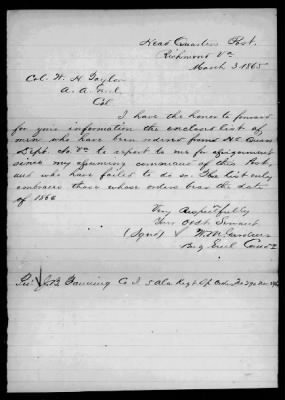 Head Quarters Post,
Richmond Va
March 3 1865
Col. W. H. Taylor
A. A. Genl.
Col
I have the honor to forward
for your information the enclosed list of
men who have been ordered from Hd Quars
Dept. No. Va to report to me for assignment
since my assuming command of this Post,
and who have failed to do so. The list only
embraces those whose orders bear the date
of 1865
Very Respectfully
Your Obdt. Servant
(Signd) W. M. Gardner
Brig Genl Comdg
Fanning Co I 5 Ala Regt